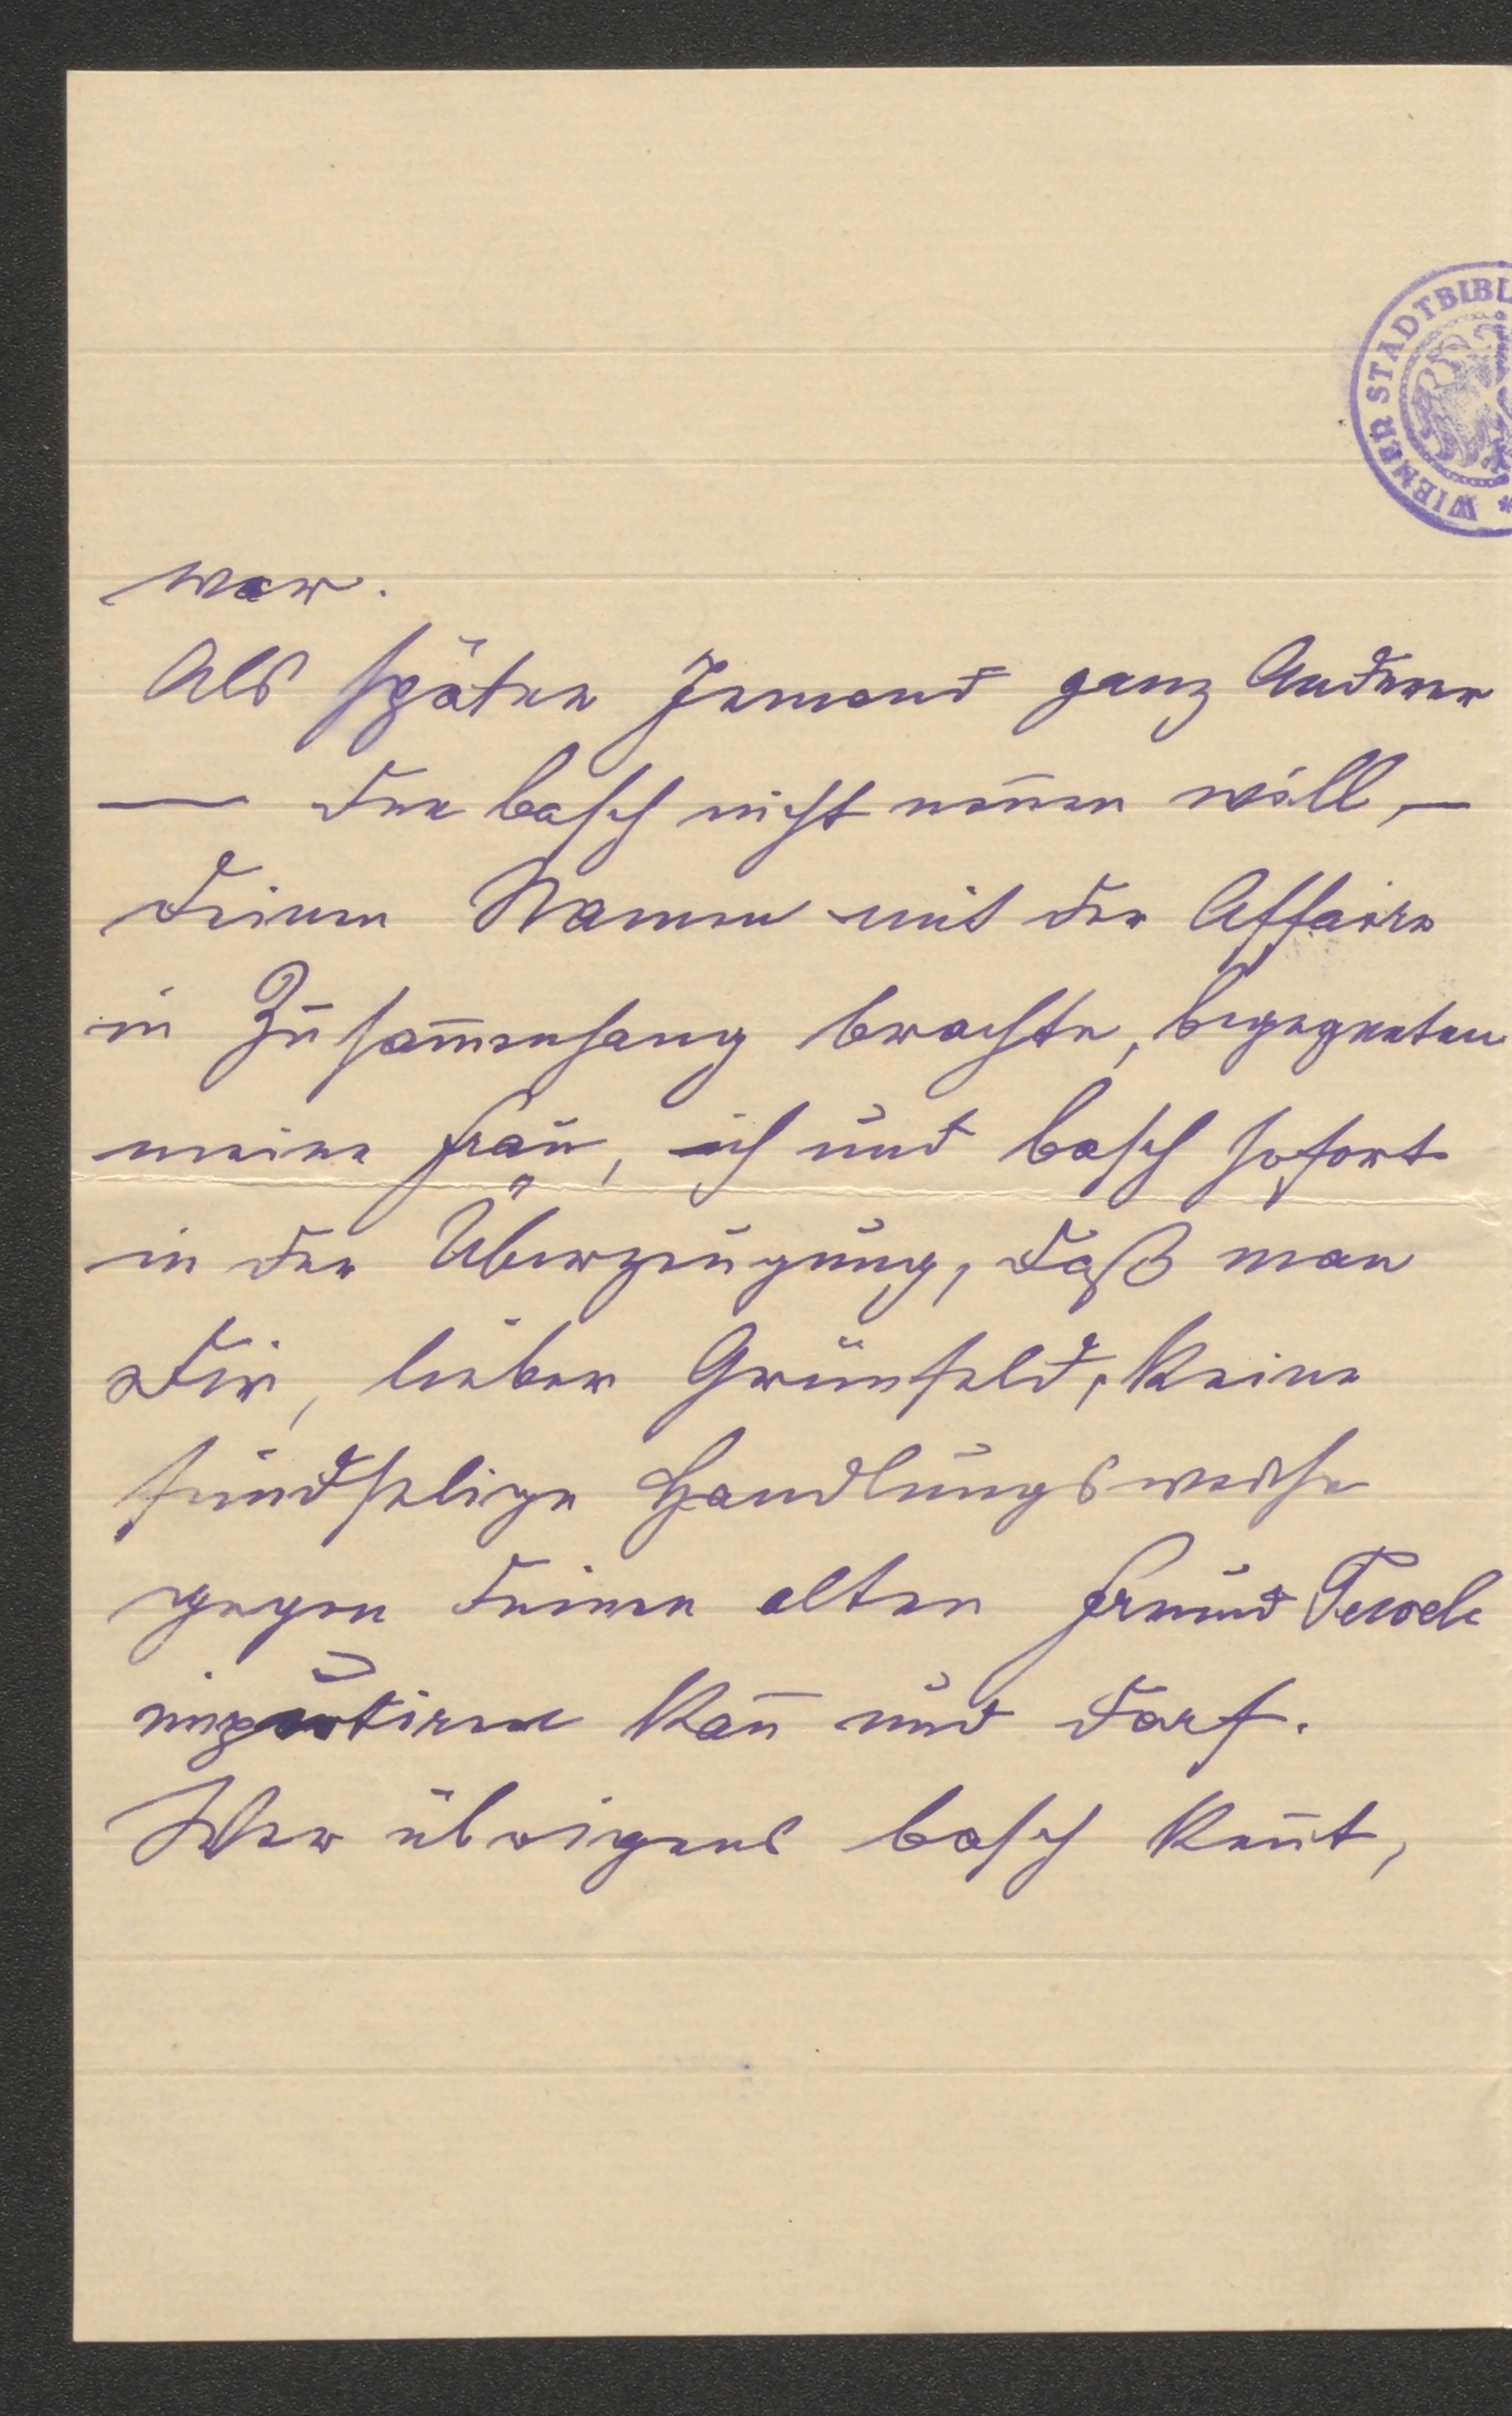 WIENER STADTBIBL
war.
Als später Jemand ganz Anderer
— den Basch nicht nen̄en will, —
Deinen Namen mit der Affaire
in Zusam̄enhang brachte, begegneten
meine Frau, ich und Basch sofort
in der Überzeugung, daß man
Dir, lieber Grünfeld, keine
feindselige Handlungsweise
gegen Deinen alten Freund Tewele
imputiren kan̄ und darf.
Wer übrigens Basch ken̄t,